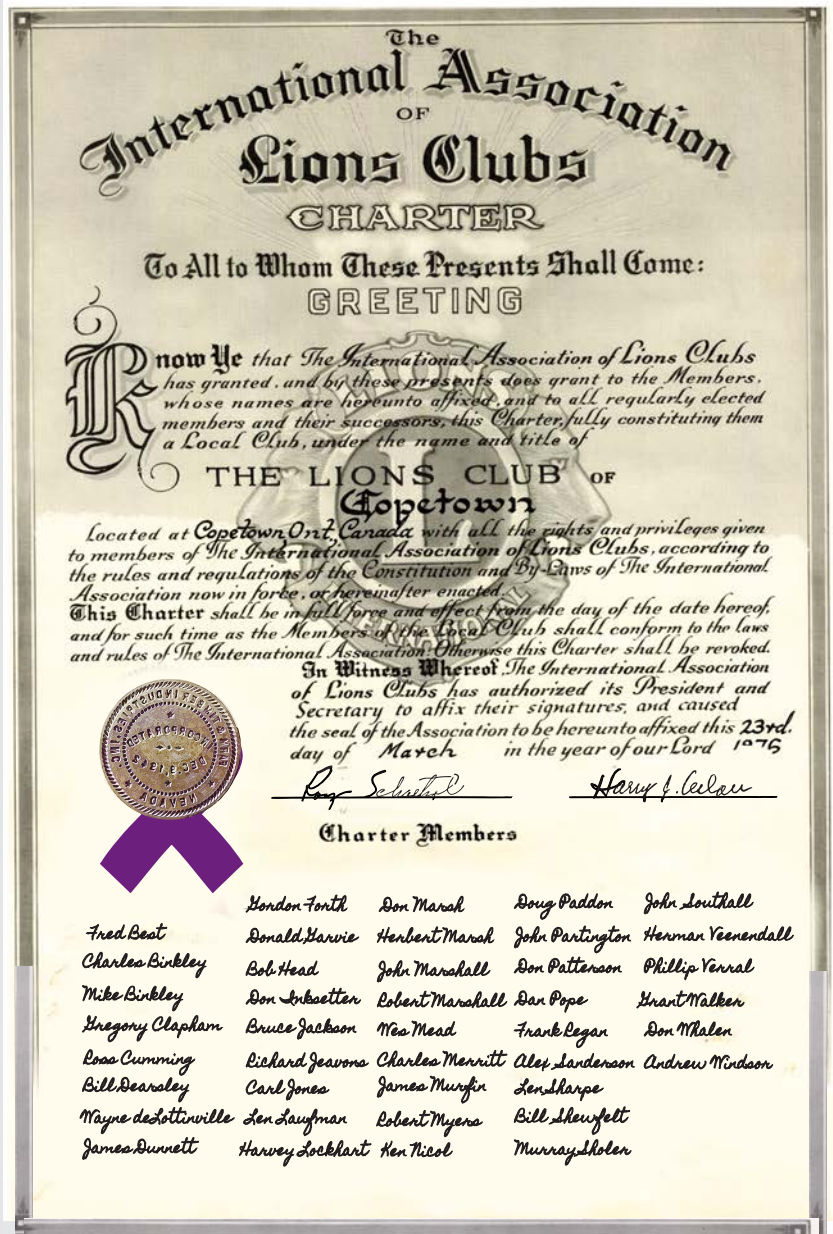 The
International Association
OF
Lions Clubs
CHARTER
To All to Whom These Presents Shall Come:
GREETING
Know Ye that The International Association of Lions Clubs
has granted, and by these presents does grant to the Members,
whose names are hereunto affixed, and to all regularly elected
members and their successors, this Charter, fully constituting them
a Local Club, under the name and title of
THE LIONS CLUB OF
Copetown
Located at Copetown Ont, Canada with all the rights and privileges given
to members of The International Association of Lions Clubs, according to
the rules and regulations of the Constitution and By-Laws of The International
Association now in force, or hereinafter enacted.
This Charter shall be in full force and effect from the day of the date hereof,
and for such time as the Members of the Local Club shall conform to the laws
and rules of The International Association: Otherwise this Charter shall be revoked.
In Witness Whereof, The International Association
of Lions Clubs has authorized its President and
Secretary to affix their signatures, and caused
the seal of the Association to be hereunto affixed this 23rd.
day of March in the year of our Lord
INCORPORATED
Roy
Harry J.
Charter Members
Fred Best
Charles Binkley
Mike Binkley
Gregory Clapham
Ross Cumming
Bill Dearsley
Wayne deLottinville
James Dunnett
Gordon Forth
Donald Garvie
Bob Head
Don Inksetter
Bruce Jackson
Richard Jeavons
Carl Jones
Len Laufman
Harvey Lockhart
Don Marsh
Herbert Marsh
John Marshall
Robert Marshall
Wes Mead
Charles Merritt
James Murfin
Robert Myers
Ken Nicol
Doug Paddon
John Partington
Don Patterson
Dan Pope
Frank Regan
Alex Sanderson
Len Sharpe
Bill Shewfelt
Murray Sholer
John Southall
Herman Veenendall
Phillip Verral
Grant Walker
Don Whalen
Andrew Windsor